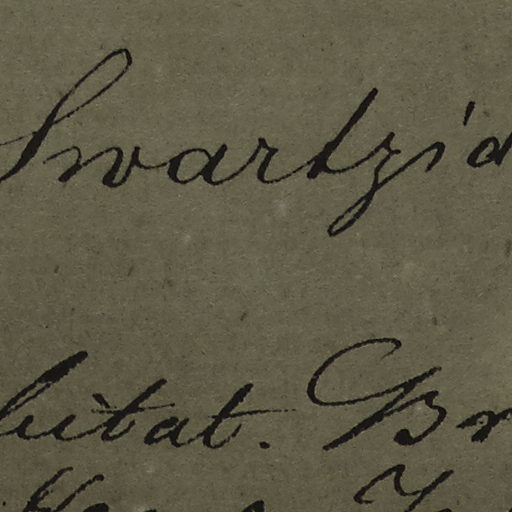 Swartzia
bitat. Br